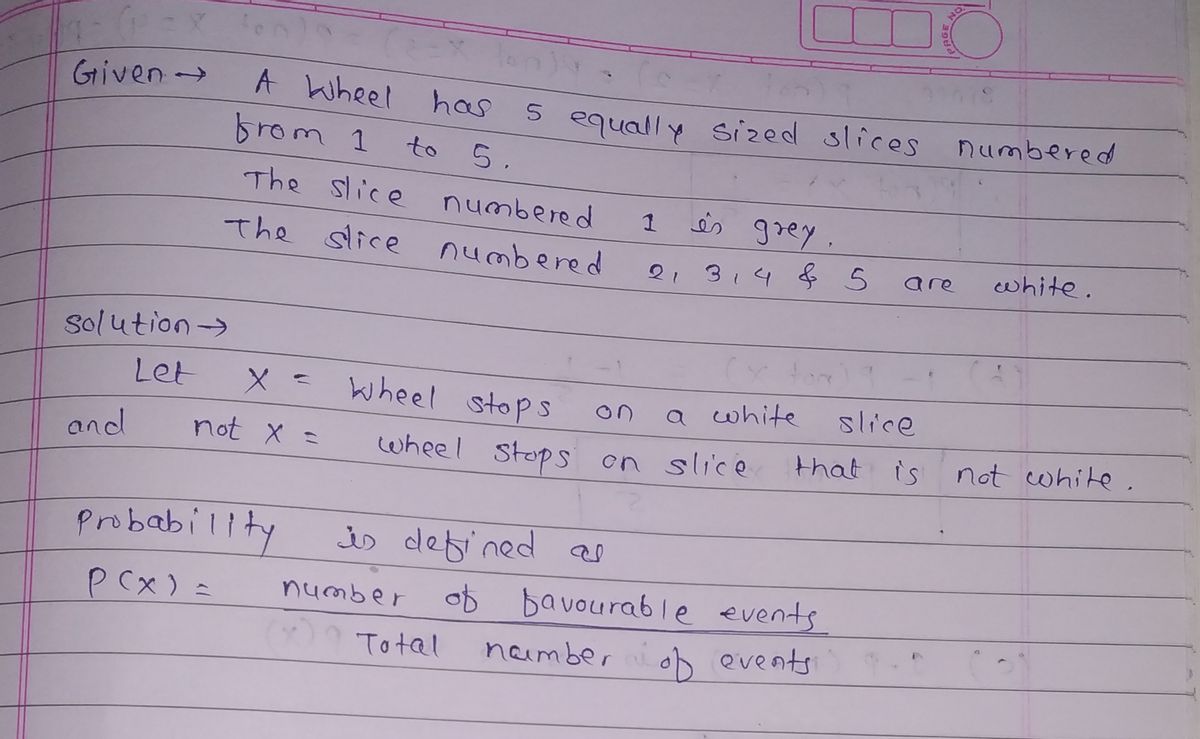 PAGE NO.
Given → A wheel has 5 equally sized slices numbered
from 1 to 5.
The slice numbered 1 is grey.
The slice numbered 2, 3, 4 & 5 are white.
solution →
Let X = Wheel stops on a white slice
and not X = wheel stops on slice that is not white.
Probability is defined as
P(X) = number of favourable events
Total number of events